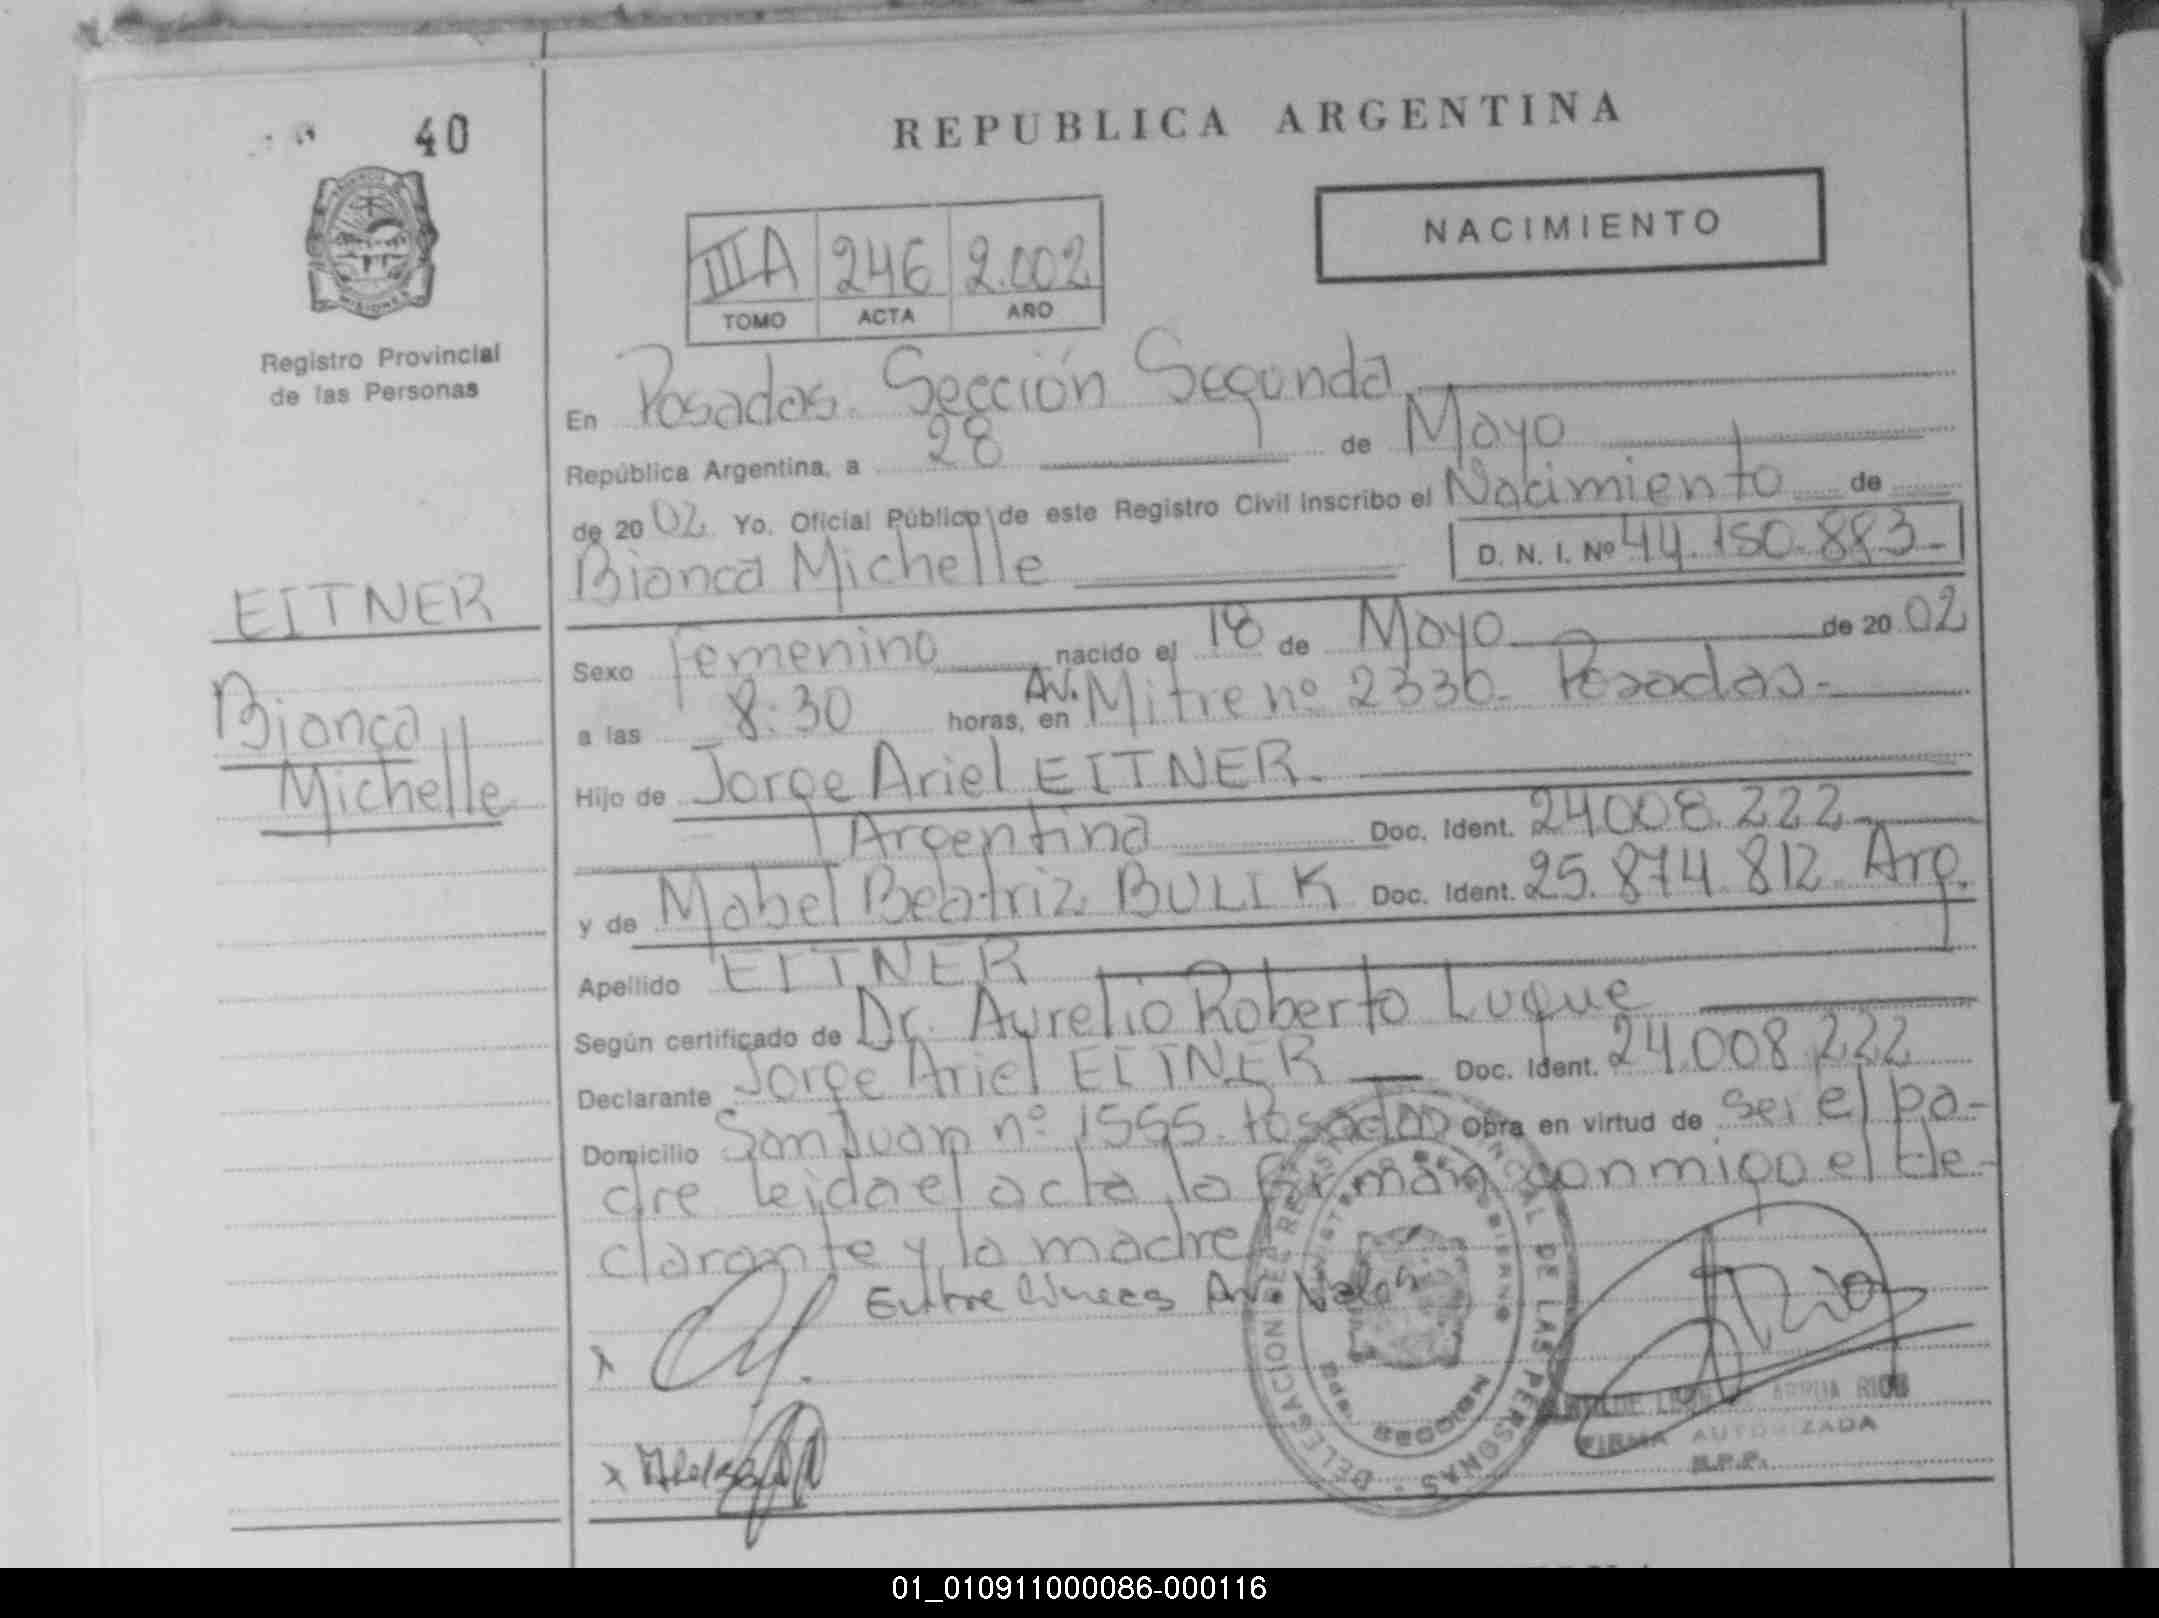 40
REPUBLICA ARGENTINA
NACIMIENTO
IIIA 246 2.002
TOMO ACTA AÑO
Registro Provincial
de las Personas
En Posadas. Sección Segunda
República Argentina, a 28 de Mayo
de 2002 Yo, Oficial Público de este Registro Civil Inscribo el Nacimiento de
Bianca Michelle D. N. I. Nº 44.150.883-
EITNER
Bianca
Michelle
Sexo Femenino nacido el 18 de Mayo de 2002
a las 8:30 horas, en Av. Mitre nº 2330- Posadas-
Hijo de Jorge Ariel EITNER.
Argentina Doc. Ident. 24.008.222
y de Mabel Beatriz BULIK Doc. Ident. 25.874.812 Arg.
Apellido EITNER
Según certificado de Dr. Aurelio Roberto Luque
Declarante Jorge Ariel EITNER Doc. Ident. 24.008.222
Domicilio San Juan nº 1555. Posadas Obra en virtud de ser el pa-
dre leida el acta la firman conmigo el de-
clarante y la madre
Entre lineas Av. Vale
DELEGACION DEL REGISTRO PROVINCIAL DE LAS PERSONAS
MINISTERIO DE GOBIERNO
MISIONES
ARRUA RIOS
FIRMA AUTORIZADA
R.P.P.
01_010911000086-000116